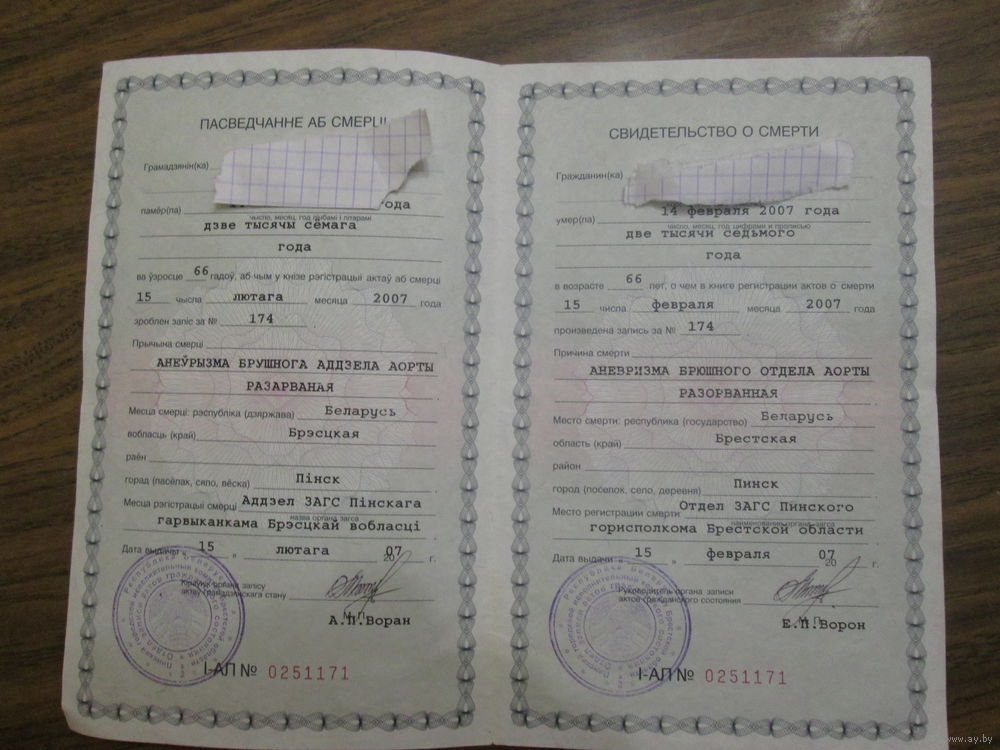 ПАСВЕДЧАННЕ АБ СМЕРЦІ
Грамадзянін(ка)
памёр(ла) ода
чысло, месяц, год лічбамі і літарамі
дзве тысячы сёмага
года
ва ўзросце 66 гадоў, аб чым у кнізе рэгістрацыі актаў аб смерці
15 чысла лютага месяца 2007 года
зроблен запіс за № 174
Прычына смерці
АНЕЎРЫЗМА БРУШНОГА АДДЗЕЛА АОРТЫ
РАЗАРВАНАЯ
Месца смерці: рэспубліка (дзяржава) Беларусь
вобласць (край) Брэсцкая
раён
горад (пасёлак, сяло, вёска) Пінск
Месца рэгістрацыі смерці Аддзел ЗАГС Пінскага
назва органа загса
гарвыканкама Брэсцкай вобласці
Дата выдачы « 15 » лютага 2007 г.
Кіраўнік органа запісу
актаў грамадзянскага стану
М.П.
А.П.Воран
І-АП № 0251171
СВИДЕТЕЛЬСТВО О СМЕРТИ
Гражданин(ка)
умер(ла) 14 февраля 2007 года
число, месяц, год цифрами и прописью
две тысячи седьмого
года
в возрасте 66 лет, о чем в книге регистрации актов о смерти
15 числа февраля месяца 2007 года
произведена запись за № 174
Причина смерти
АНЕВРИЗМА БРЮШНОГО ОТДЕЛА АОРТЫ
РАЗОРВАННАЯ
Место смерти: республика (государство) Беларусь
область (край) Брестская
район
город (поселок, село, деревня) Пинск
Место регистрации смерти Отдел ЗАГС Пинского
наименование органа загса
горисполкома Брестской области
Дата выдачи « 15 » февраля 2007 г.
Руководитель органа записи
актов гражданского состояния
М.П.
Е.П.Ворон
І-АП № 0251171
www.ay.by